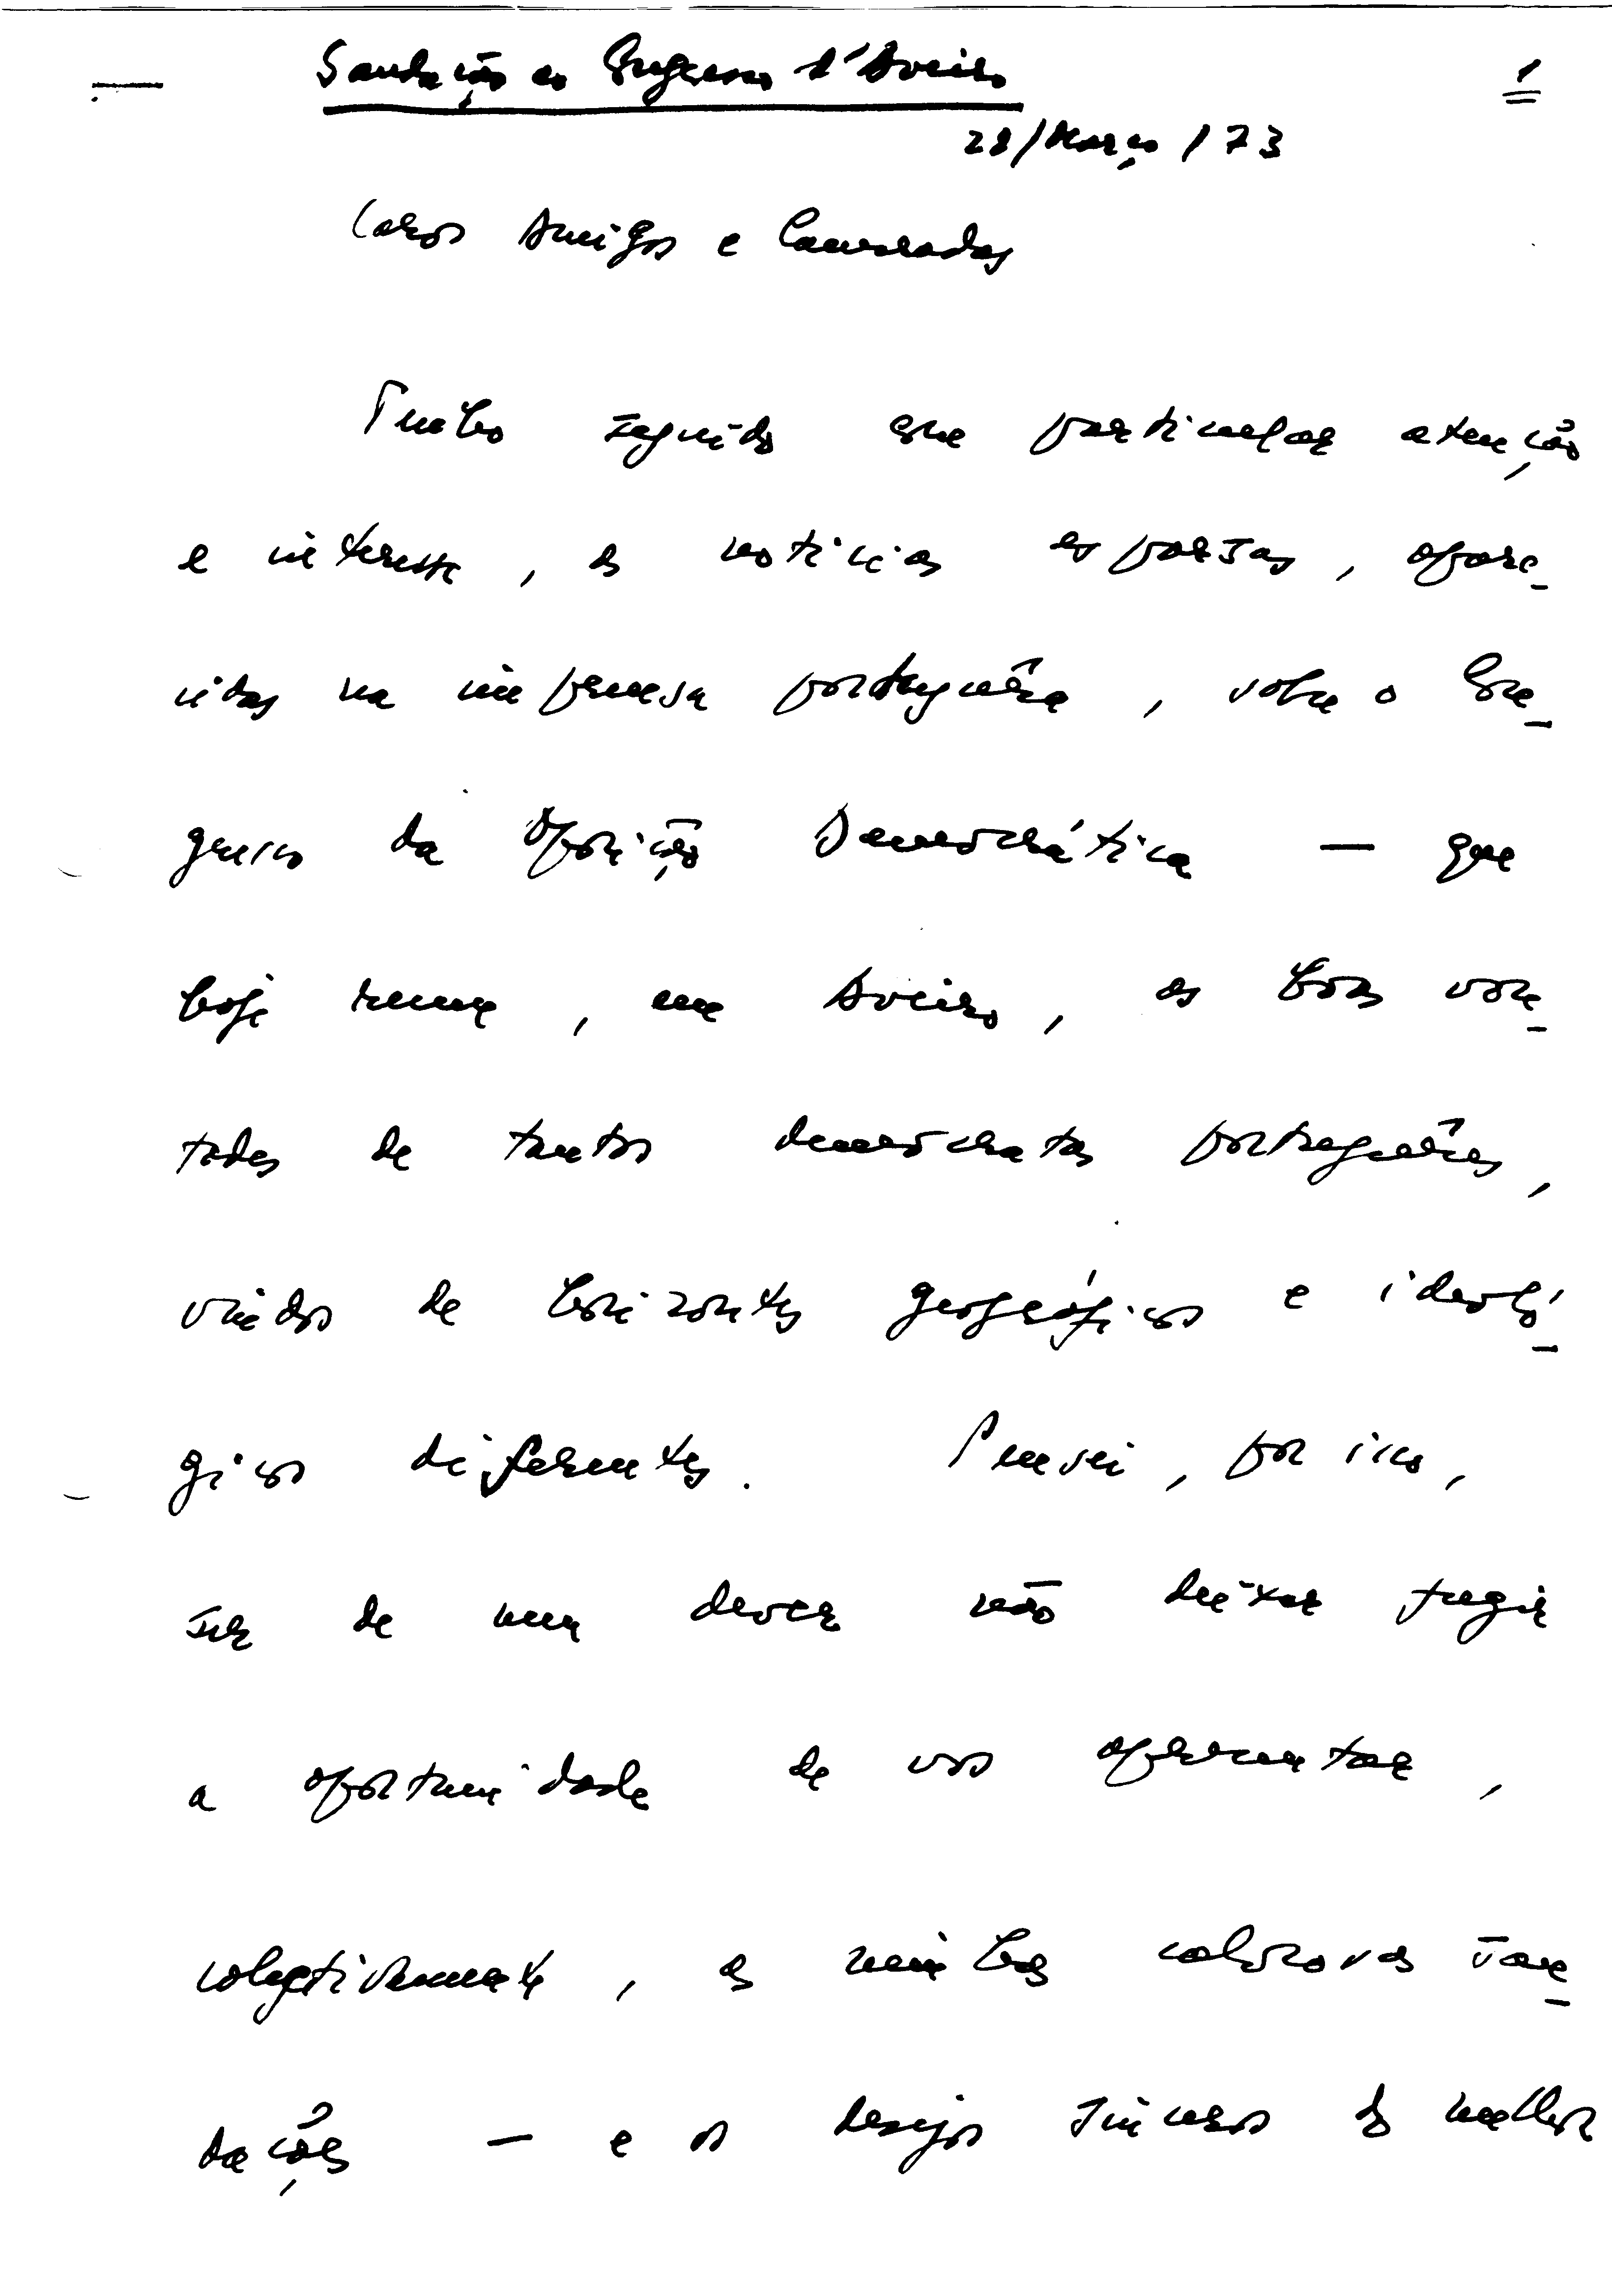 Saudação ao Congresso d'Aveiro
1
28/Março/73
Caros Amigos e Camaradas
Tenho seguido com particular atenção
e interesse, as notícias esparsas, apare-
cidas na imprensa portuguêsa, sobre o Con-
gresso da Oposição Democrática — que
hoje reune, em Aveiro, as boas von-
tades de tantos democratas portuguêses,
vindos de horizontes geográficos e ideoló-
gicos diferentes. Pensei, por isso,
ser de meu dever não deixar fugir
a oportunidade de vos apresentar,
colectivamente, as minhas calorosas sau-
dações — e os desejos sinceros do melhor